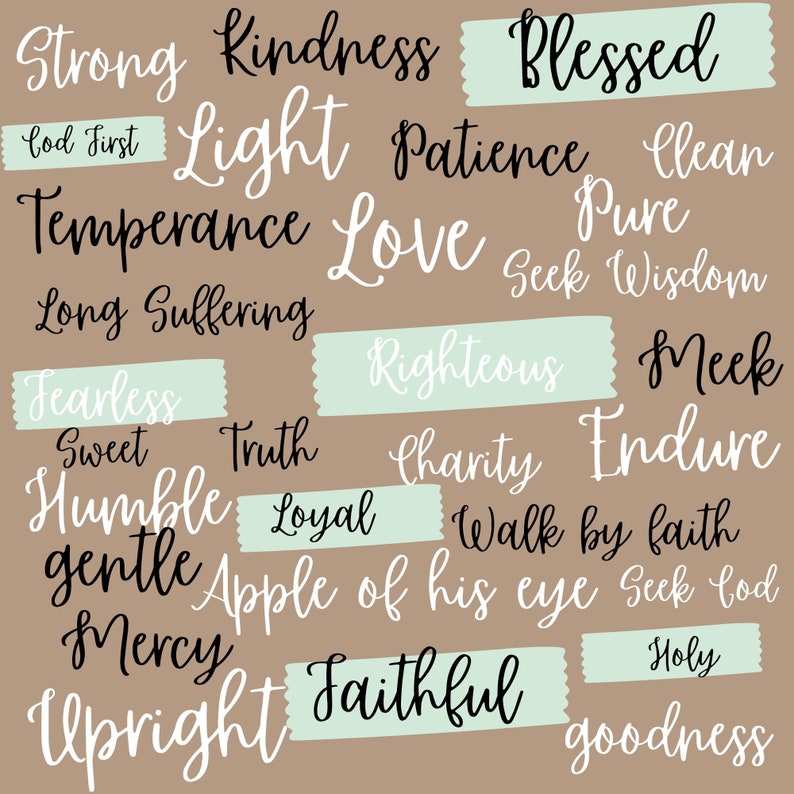 Strong
Kindness
Blessed
God First
Light
Patience
Clean
Temperance
Love
Pure
Seek Wisdom
Long Suffering
Righteous
Meek
Fearless
Sweet
Truth
Charity
Endure
Humble
Loyal
Walk by faith
gentle
Apple of his eye
Seek God
Mercy
Holy
Faithful
Upright
goodness